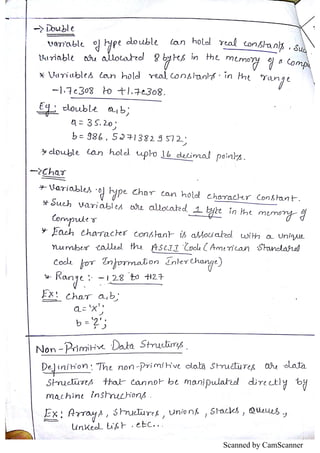 → Double
Variable of type double can hold real constants. Such
Variable are allocated 8 bytes in the memory of a Compu
* Variables can hold real constants in the range
-1.7e308 to +1.7e308.
Eg: double a,b;
a = 35.20;
b = 986.5271382 9512;
* double can hold upto 16 decimal points.
→ Char
* Variables of type Char can hold character constant.
* Such variables are allocated 1 byte in the memory of
Computer
* Each character constant is associated with a unique
number called the ASCII Code (American Standard
Code for Information Interchange)
* Range :- -128 to +127
Ex: Char a,b;
a='x';
b='?';
Non-Primitive Data Structures.
Definition: The non-primitive data structures are data
structures that cannot be manipulated directly by
machine Instructions.
Ex: Arrays, Structures, unions, Stacks, Queues,
Linked List .etc...
Scanned by CamScanner